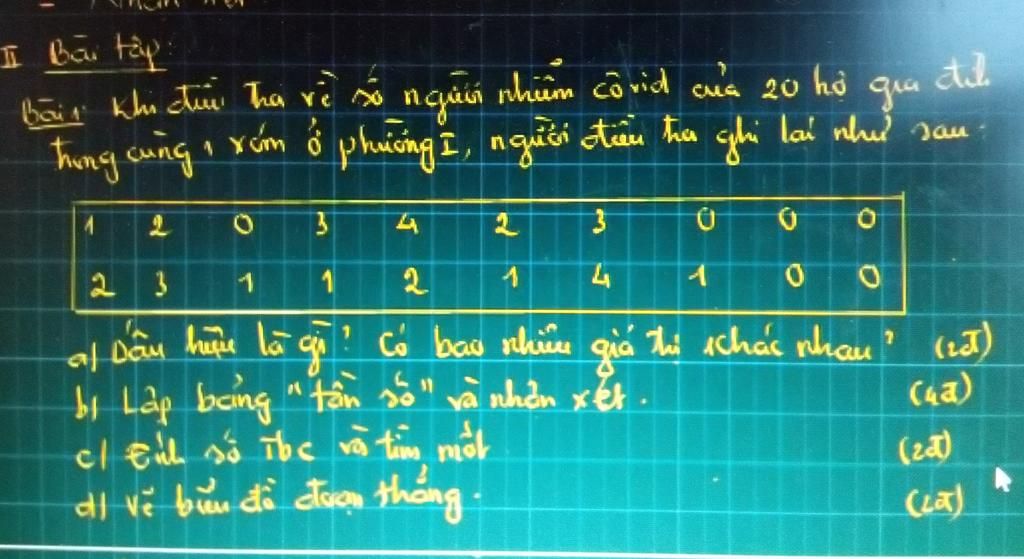 II Bài tập:
Bài 1: Khi điều tra về số người nhiễm côvid của 20 hộ gia đình
trong cùng 1 xóm ở phường I, người điều tra ghi lại như sau:
1 2 0 3 4 2 3 0 0 0
2 3 1 1 2 1 4 1 0 0
a) Dấu hiệu là gì? Có bao nhiêu giá trị khác nhau? (2đ)
b) Lập bảng "tần số" và nhận xét. (4đ)
c) Tính số Tbc và tìm mốt (2đ)
d) Vẽ biểu đồ đoạn thẳng. (2đ)